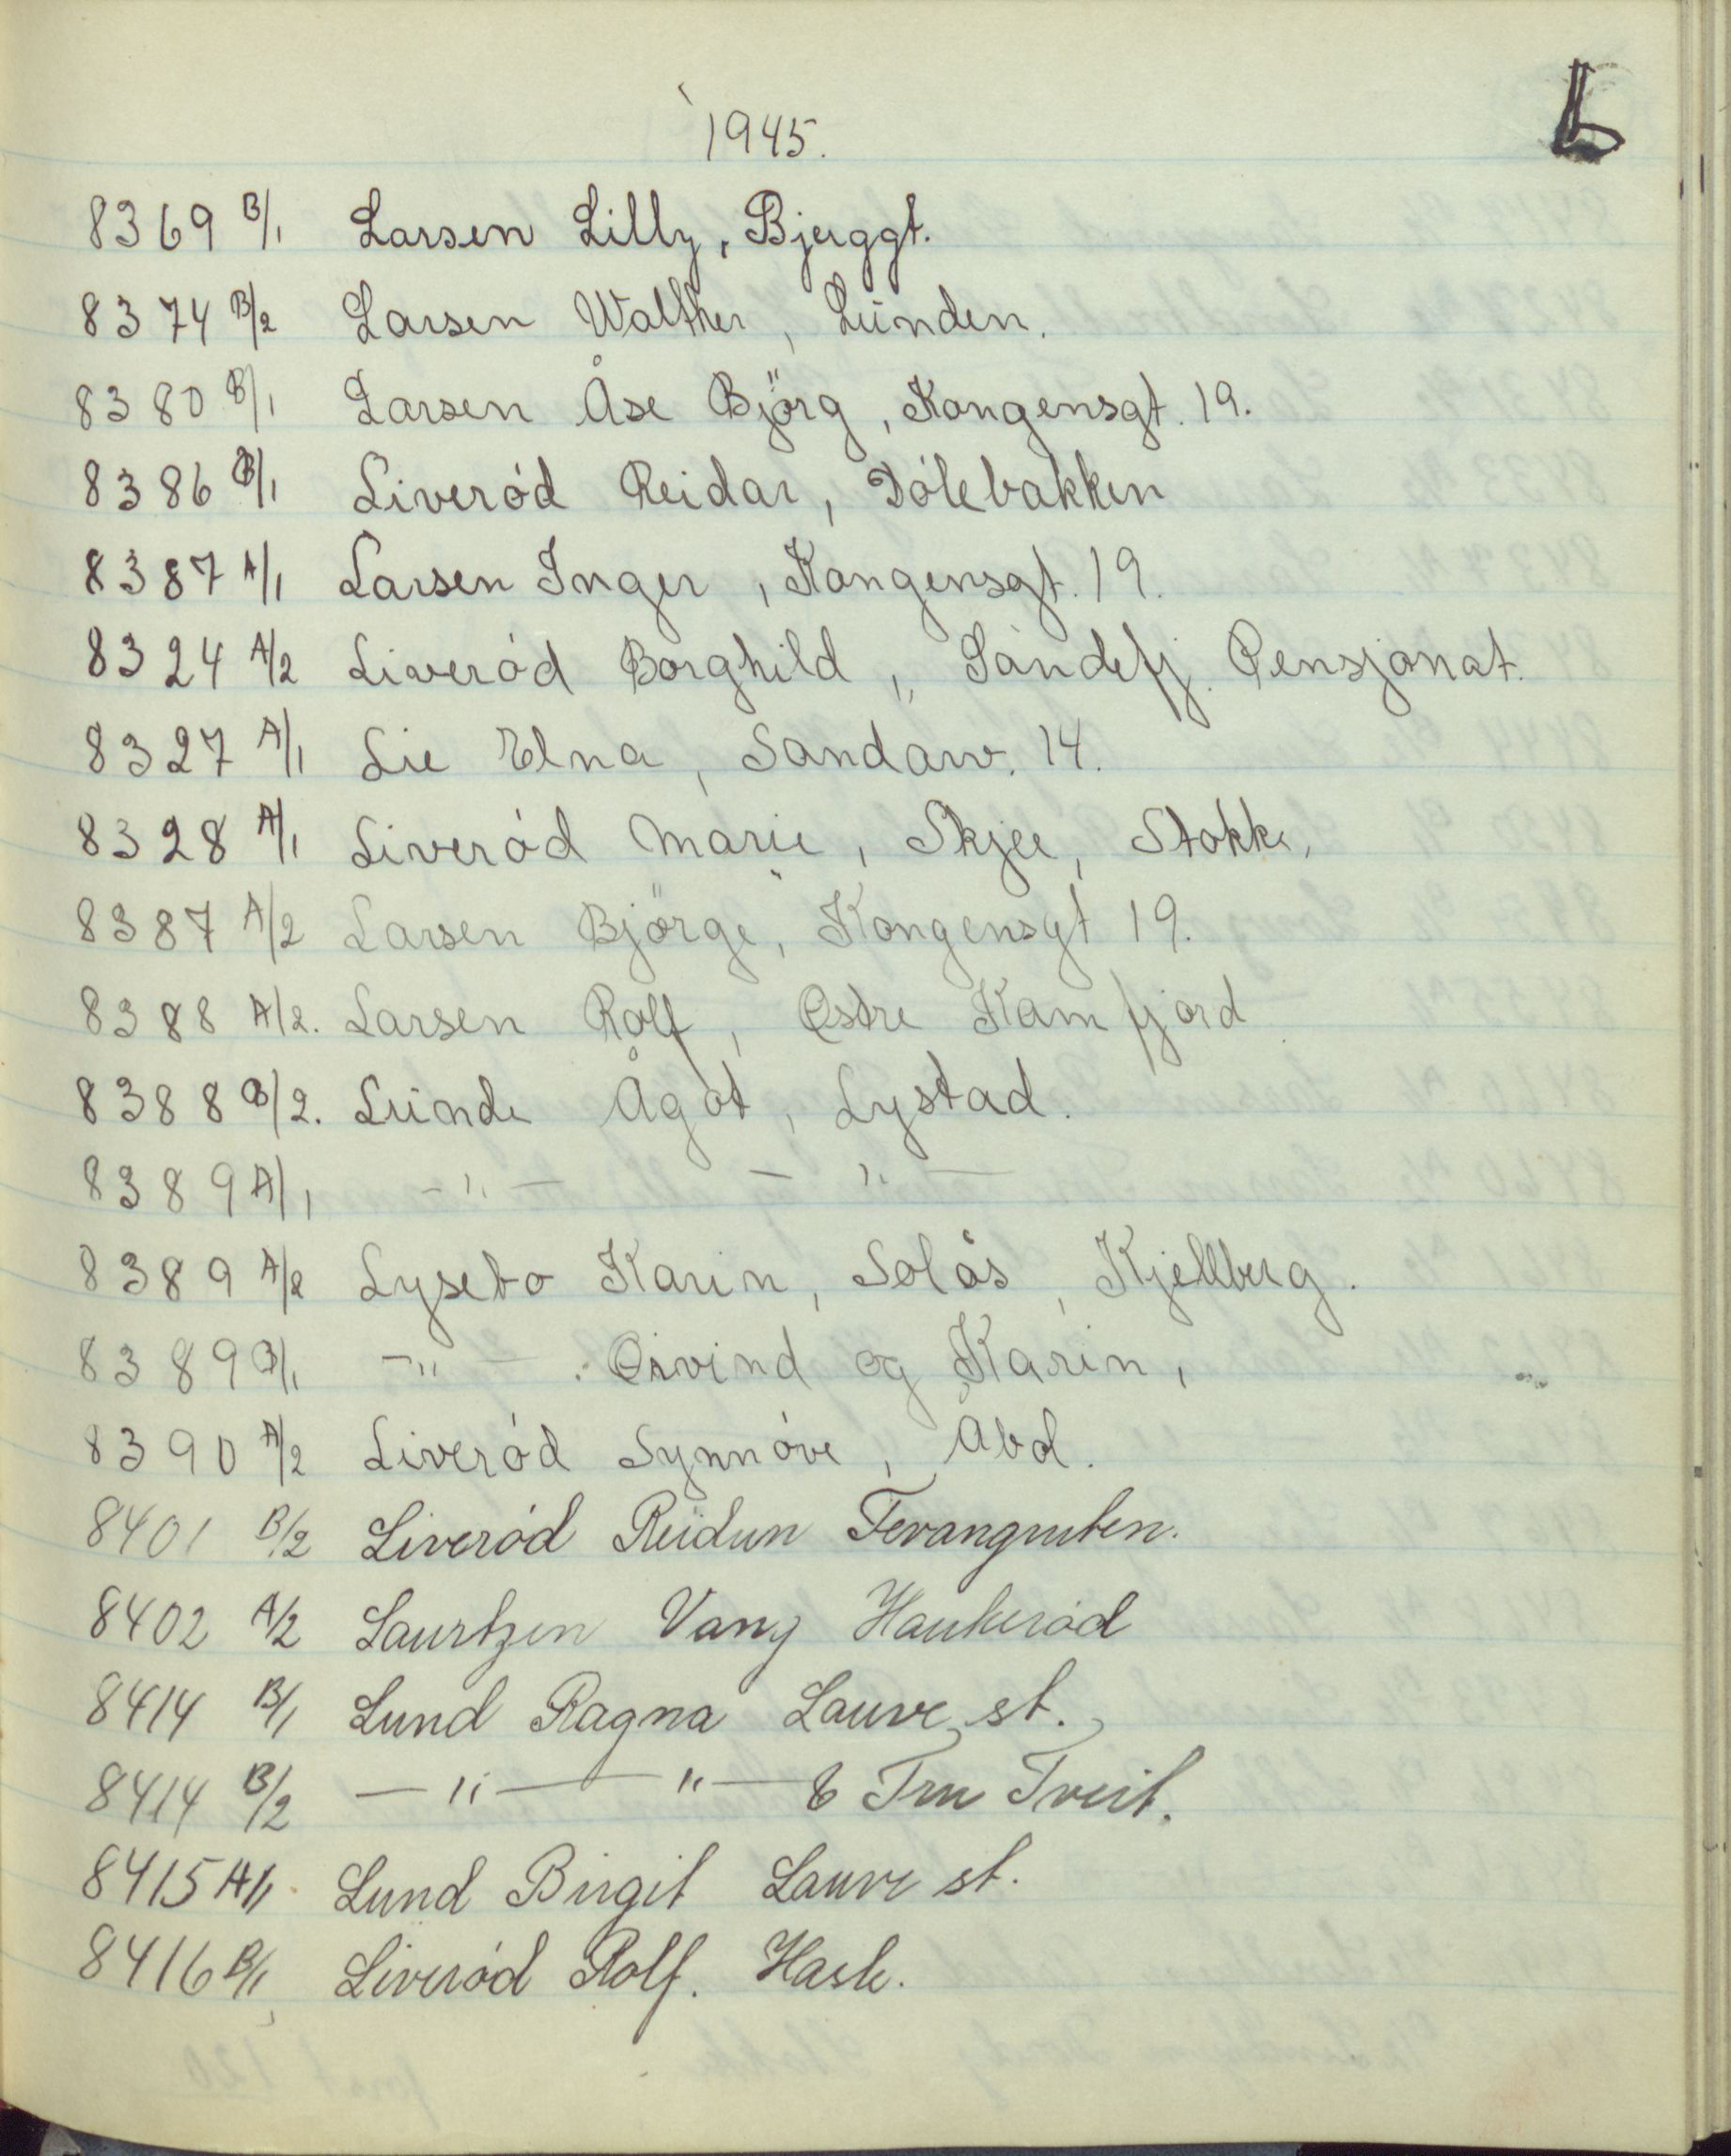 L
1945.
8369 B/1 Larsen Lilly, Bjerggt.
8374 B/2 Larsen Walther, Lunden.
8380 B/1 Larsen Åse Björg, Kongensgt. 19.
8386 B/1 Liveród Reidar, Dólebakken
8387 A/1 Larsen Inger, Kongensgt. 19.
8324 A/2 Liveród Borghild, Sandefj. Pensjonat.
8327 A/1 Lie Elna, Sandarv. 14.
8328 A/1 Liveród Marie, Skjee, Stokke.
8387 A/2 Larsen Björge, Kongensgt 19.
8388 A/2. Larsen Rolf, Østre Kamfjord
8388 B/2. Lunde Ågot, Lystad.
8389 A/1 - " - - " -
8389 A/2 Lysebo Karin, Solås, Kjellberg.
8389 B/1 - " - Øivind og Karin,
8390 A/2 Liveród Synnóve, Åbol.
8401 B/2 Liveród Reidun Fevangruten.
8402 A/2 Laurtzen Vany Haukeród
8414 B/1 Lund Ragna Lauve st.
8414 B/2 — " — " — & Fru Tveit.
8415 A/1 Lund Birgit Lauve st.
8416 B/1 Liveród Rolf. Hasle.